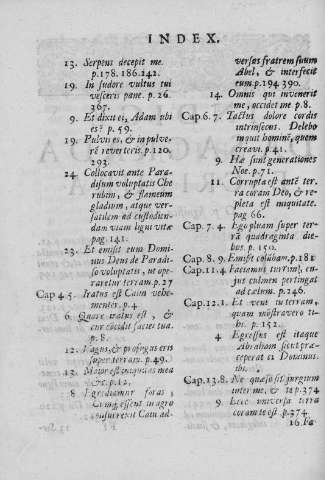 INDEX.
13. Serpens decepit me.
p.178. 186.242.
19. In sudore vultus tui
vesceris pane. p.26.
367.
9. Et dixit ei, Adam ubi
es? p. 59.
19. Pulvis es, & in pulve-
rē reverteris. p.120.
293.
24. Collocavit ante Para-
disum voluptatis Che
rubim, & flameum
gladium, atque ver-
satilem ad custodien-
dam viam ligni vitæ
pag. 141.
23. Et emisit eum Domi-
nus Deus de Paradi-
so voluptatis, ut ope-
raretur terram. p.27
Cap 4 5. Iratus est Cain vehe-
menter. p.4
6. Quare iratus est, &
cur cōcidit facies tua.
p.8.
12. Vagus, & profugus eris
super terram. p.49.
13. Maior est iniquitas mea
&c. p.12.
8 Egrediamur foras,
Cumq; essent in agro
consurrexit Cain ad-
versus fratrem suum
Abel, & interfecit
eum. p.194 390.
14. Omnis qui invenerit
me, occidet me p.8.
Cap.6. 7. Tactus dolore cordis
intrinsecus. Delebo
inquit hominē, quem
creavi. p.41.
9. Hæ sunt generationes
Noe. p.71.
11. Corrupta est antē ter-
ra coram Deo, & re-
pleta est iniquitate.
pag 66.
Cap.7. 4. Ego pluam super ter-
rā quadraginta die-
bus. p. 150.
Cap.8. 9. Emisit colūbam. p.181
Cap.11.4 Faciamus turrim, cu-
jus culmen pertingat
ad cælum. p.246.
Cap.12.1. Et veni in terram,
quam mōstravero ti-
bi. p. 152.
4 Egressus est itaque
Abraham sicut præ-
ceperat ei Dominus.
ibi.
Cap.13.8. Ne quæso sit jurgium
inter me, & te p.374
9. Ecce universa terra
coram te est p.374
16. Fa-